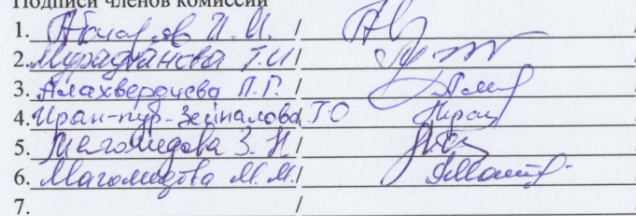 Подписи членов комиссии
1. И. И. /
2. Мурадханова Т. И /
3. Алахвердиева П. Г. /
4. Иран-пур-Зейналова Т О
5. Магомедова З. Н /
6. Магомедова М. М. /
7. /